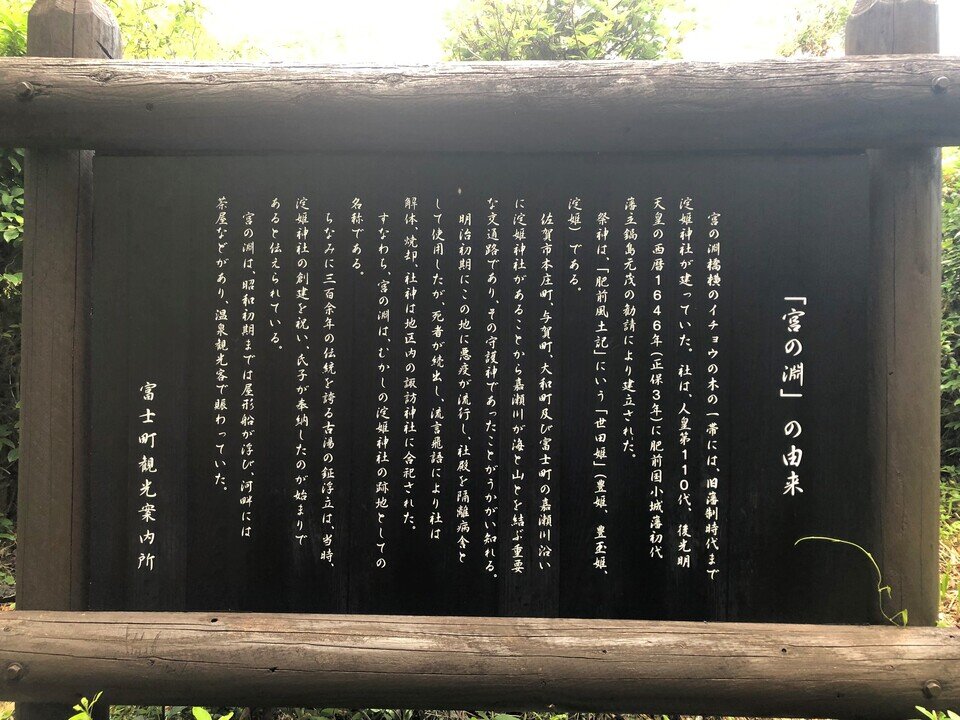 「宮の淵」の由来
宮の淵橋横のイチョウの木の一帯には、旧藩制時代まで
淀姫神社が建っていた。社は、人皇第110代、後光明
天皇の西暦1646年(正保3年)に肥前国小城藩初代
藩主鍋島元茂の勧請により建立された。
祭神は、「肥前風土記」にいう「世田姫」(豊姫、豊玉姫、
淀姫)である。
佐賀市本庄町、与賀町、大和町及び富士町の嘉瀬川沿い
に淀姫神社があることから嘉瀬川が海と山とを結ぶ重要
な交通路であり、その守護神であったことがうかがい知れる。
明治初期にこの地に悪疫が流行し、社殿を隔離病舎と
して使用したが、死者が続出し、流言飛語により社は
解体、焼却、社神は地区内の諏訪神社に合祀された。
すなわち、宮の淵は、むかしの淀姫神社の跡地としての
名称である。
ちなみに三百余年の伝統を誇る古湯の鉦浮立は、当時、
淀姫神社の創建を祝い、氏子が奉納したのが始まりで
あると伝えられている。
宮の淵は、昭和初期までは屋形船が浮び、河畔には
茶屋などがあり、温泉観光客で賑わっていた。
富士町観光案内所